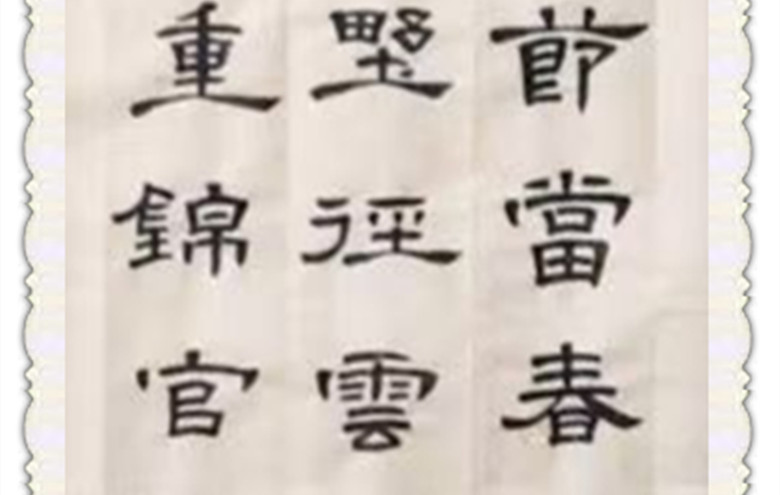 節當春
野徑雲
重錦官